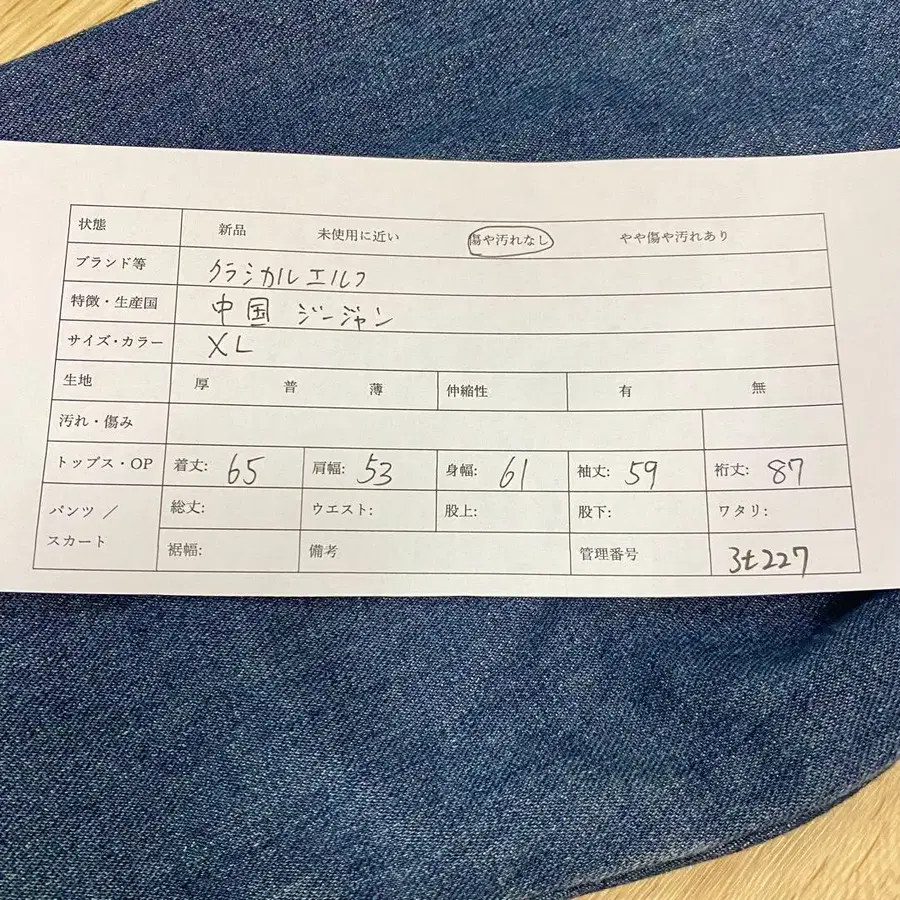 状態 新品 未使用に近い 傷や汚れなし やや傷や汚れあり
ブランド等 クラシカルエルフ
特徴・生産国 中国 ジージャン
サイズ・カラー XL
生地 厚 普 薄 伸縮性 有 無
汚れ・傷み
トップス・OP 着丈: 65 肩幅: 53 身幅: 61 袖丈: 59 裄丈: 87
パンツ / スカート 総丈: ウエスト: 股上: 股下: ワタリ:
裾幅: 備考 管理番号 3t227